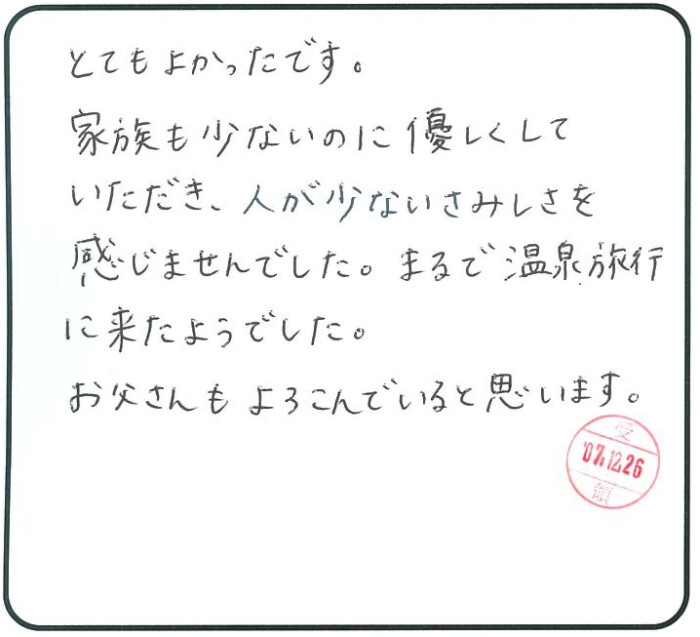 とてもよかったです。
家族も少ないのに優しくして
いただき、人が少ないさみしさを
感じませんでした。まるで温泉旅行
に来たようでした。
お父さんもよろこんでいると思います。
受
'07.12.26
領